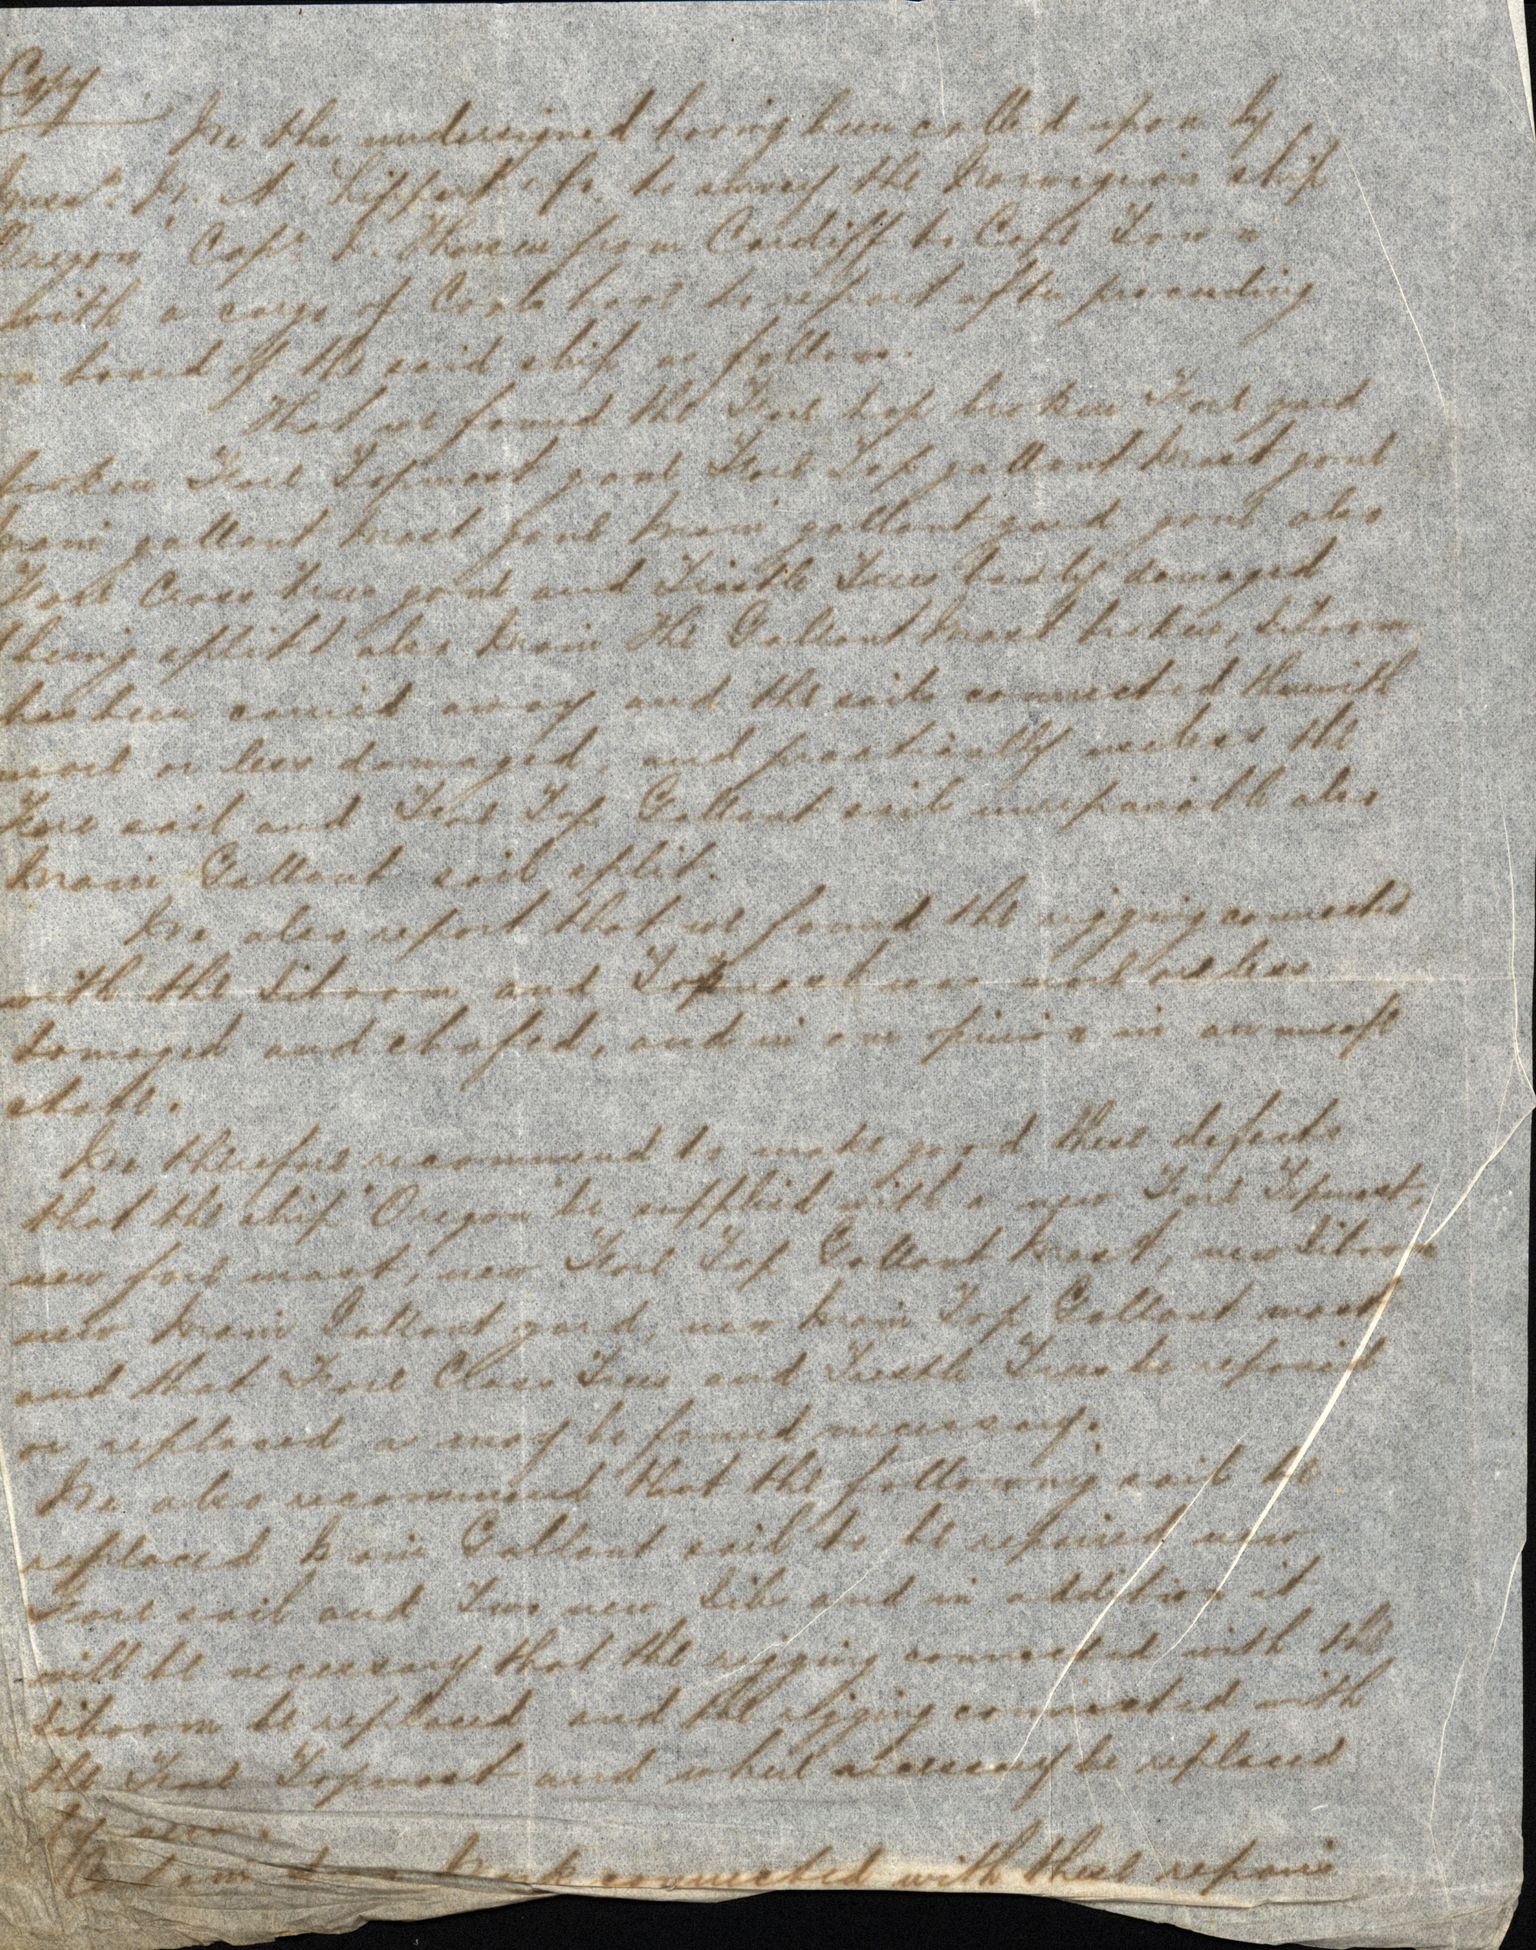 Copy
We the undersigned having been called upon by
Messrs. W. A. Lippert & Co. to survey the Norwegian ship
Oregon" Capt. L. from Cardiff to Cape Town
with a cargo of Coals have to report after proceeding
on board of the said ship as follows.
That we found the Fore top broken Fore yard
broken Fore Topmast gone Fore Top gallant Mast gone
Main gallant Mast gone Main gallant yard gone also
Fore Cross trees gone and Tristle Trees badly damaged
being split also Main the Gallant Mast broken, Jiboom
has been carried away and the sails connected therewith
more or less damaged, and practically useless the
Fore sail and Fore Top Gallant sail unrepairable also
Main Gallant sail split.
We also report that we found the rigging connected
with the Jiboom and Topmast was more or less
damaged and chafed, and in our opinion in an unsafe
state.
We therefore recommend to make good these defects
that the ship "Oregon" be supplied with a new Fore Topmast,
new fore mast, new Fore Top Gallant Mast, new Jiboom
new Main Gallant yard, new Main Top Gallant mast
and that Fore Cross Trees and Trestle Trees be repaired
or replaced as may be found necessary.
We also recommend that the following sails be
replaced Main Gallant sail to be repaired new
Fore sail and Two new Jibs and in addition it
will be necessary that the rigging connected with the
Jiboom be replaced and the rigging connected with
the Fore Topmast and where necessary be replaced
connected with these repairs